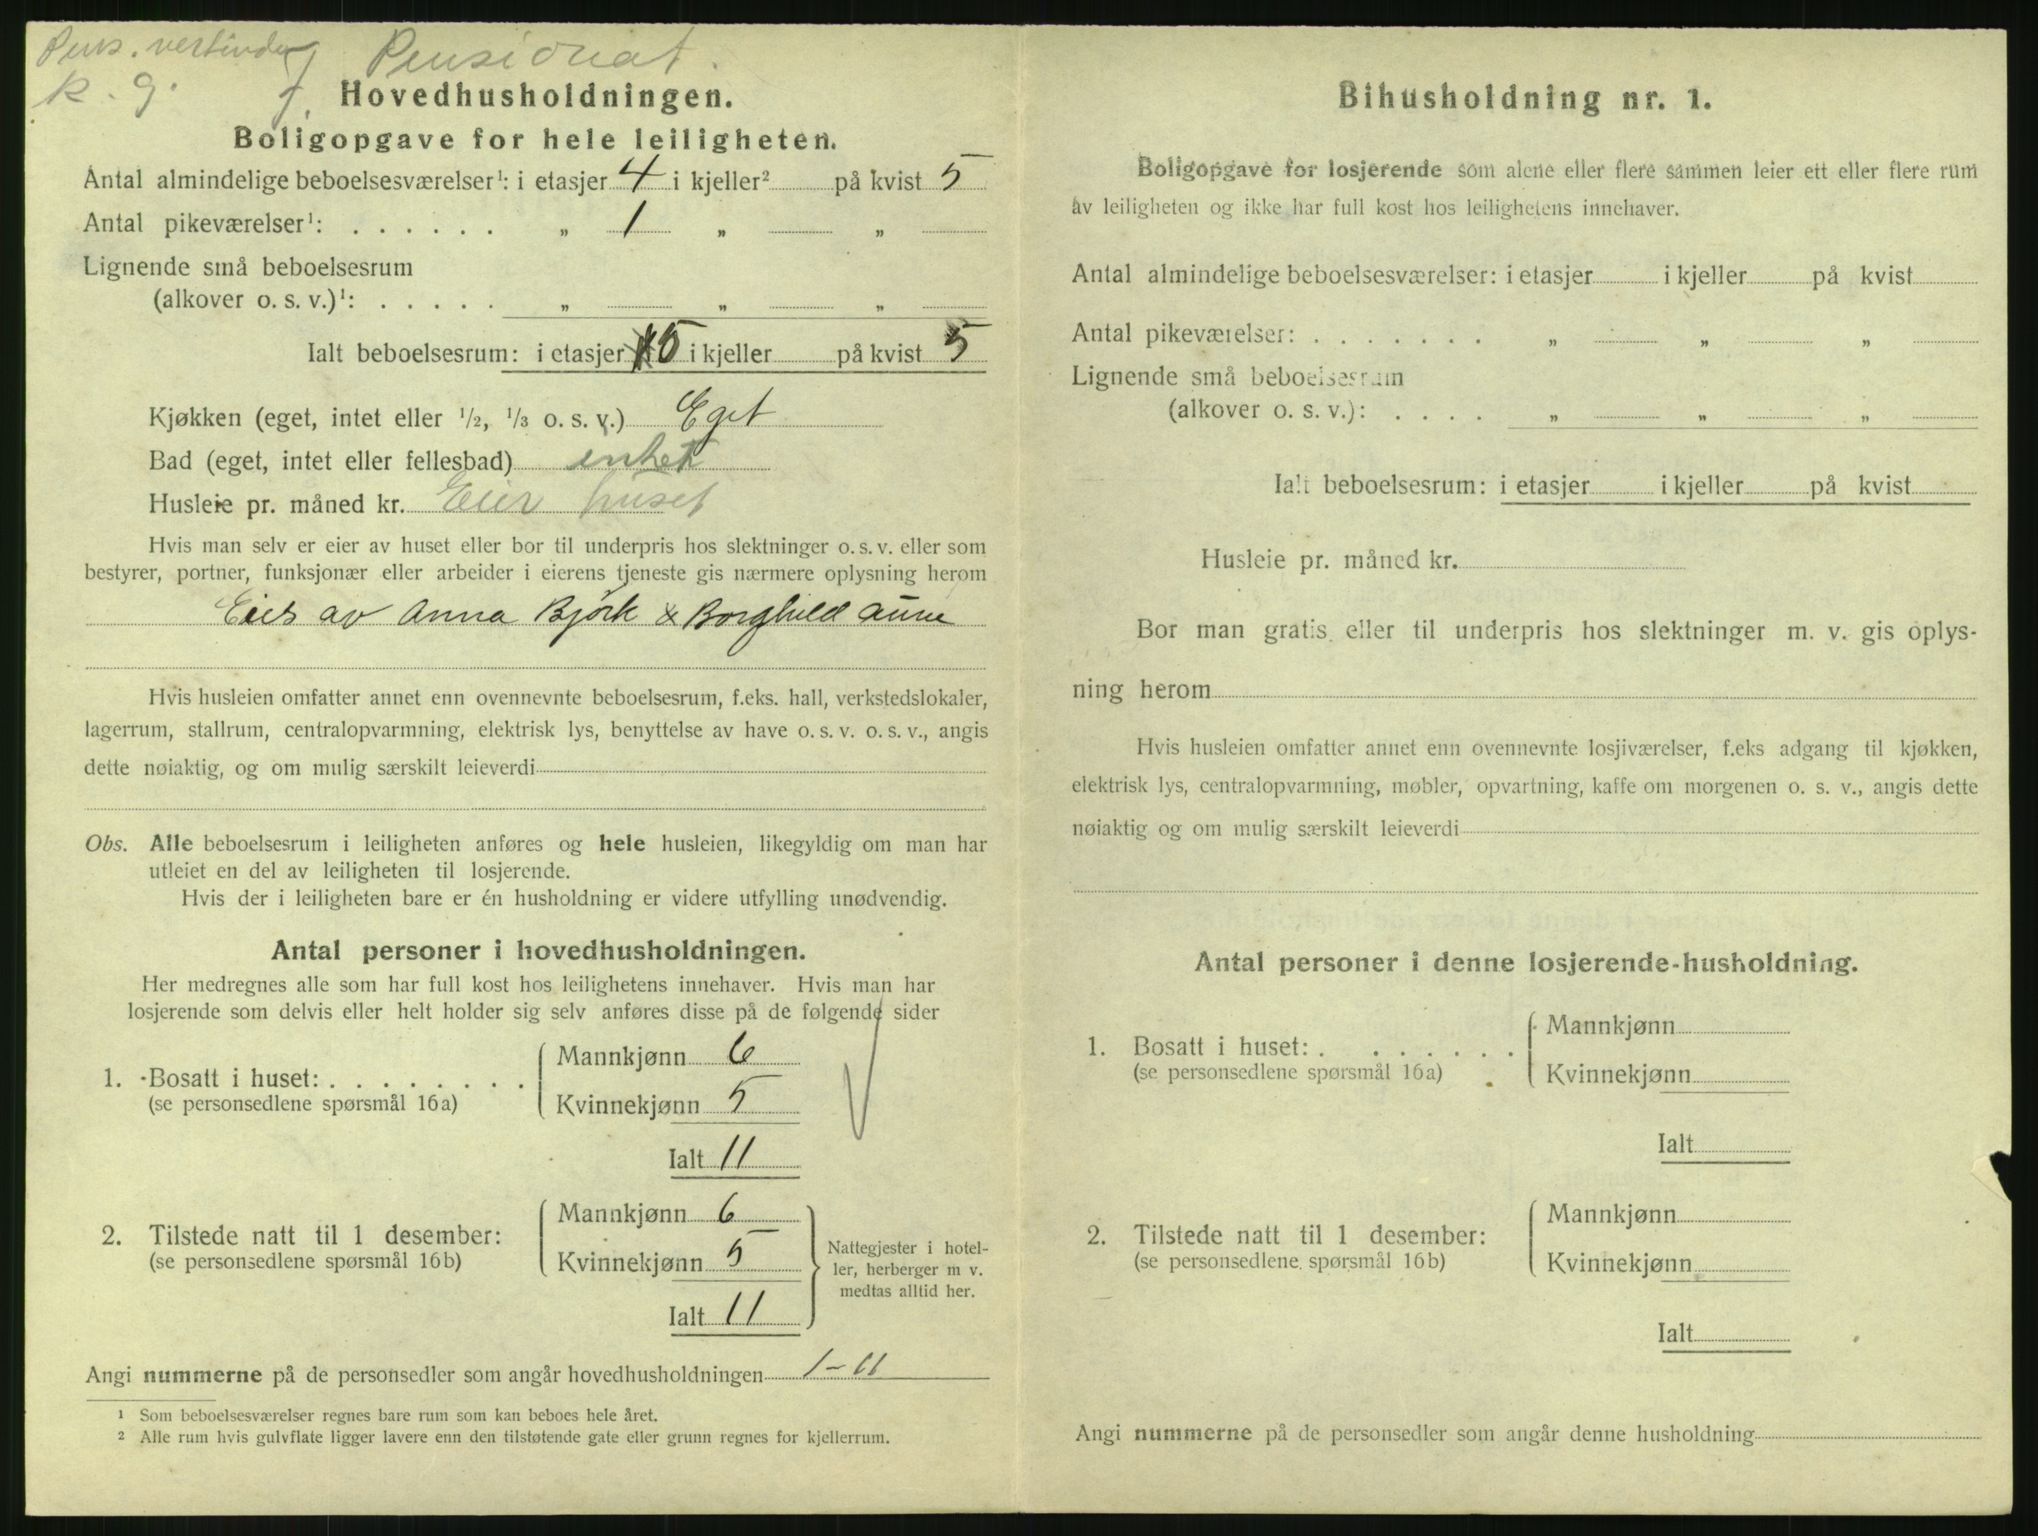 Pens. vertinde
k. g. f.
Pensionat.
Hovedhusholdningen.
Boligopgave for hele leiligheten.
Antal almindelige beboelsesværelser¹: i etasjer 4 i kjeller² på kvist 5
Antal pikeværelser¹: . . . . . . „ 1 „ „
Lignende små beboelsesrum
(alkover o. s. v.)¹: . . . . . „ „ „
Ialt beboelsesrum: i etasjer 5 i kjeller på kvist 5
Kjøkken (eget, intet eller 1/2, 1/3 o. s. v.) Eget
Bad (eget, intet eller fellesbad) intet
Husleie pr. måned kr. Eier huset
Hvis man selv er eier av huset eller bor til underpris hos slektninger o. s. v. eller som
bestyrer, portner, funksjonær eller arbeider i eierens tjeneste gis nærmere oplysning herom
Eies av Anna Bjørk & Borghild Aune
Hvis husleien omfatter annet enn ovennevnte beboelsesrum, f.eks. hall, verkstedslokaler,
lagerrum, stallrum, centralopvarmning, elektrisk lys, benyttelse av have o. s. v. o. s. v., angis
dette nøiaktig, og om mulig særskilt leieverdi
Obs. Alle beboelsesrum i leiligheten anføres og hele husleien, likegyldig om man har
utleiet en del av leiligheten til losjerende.
Hvis der i leiligheten bare er én husholdning er videre utfylling unødvendig.
Antal personer i hovedhusholdningen.
Her medregnes alle som har full kost hos leilighetens innehaver. Hvis man har
losjerende som delvis eller helt holder sig selv anføres disse på de følgende sider
1. Bosatt i huset: . . . . . . . .
(se personsedlene spørsmål 16a)
Mannkjønn 6
Kvinnekjønn 5
Ialt 11
2. Tilstede natt til 1 desember:
(se personsedlene spørsmål 16b)
Mannkjønn 6
Kvinnekjønn 5
Ialt 11
Nattegjester i hotel-
ler, herberger m v.
medtas alltid her.
Angi nummerne på de personsedler som angår hovedhusholdningen 1-11
¹ Som beboelsesværelser regnes bare rum som kan beboes hele året.
² Alle rum hvis gulvflate ligger lavere enn den tilstøtende gate eller grunn regnes for kjellerrum.
Bihusholdning nr. 1.
Boligopgave for losjerende som alene eller flere sammen leier ett eller flere rum
av leiligheten og ikke har full kost hos leilighetens innehaver.
Antal almindelige beboelsesværelser: i etasjer i kjeller på kvist
Antal pikeværelser: . . . . . . . „ „ „
Lignende små beboelsesrum
(alkover o. s. v.): . . . . „ „ „
Ialt beboelsesrum: i etasjer i kjeller på kvist
Husleie pr. måned kr.
Bor man gratis eller til underpris hos slektninger m. v. gis oplys-
ning herom
Hvis husleien omfatter annet enn ovennevnte losjiværelser, f.eks adgang til kjøkken,
elektrisk lys, centralopvarmning, møbler, opvartning, kaffe om morgenen o. s. v., angis dette
nøiaktig og om mulig særskilt leieverdi
Antal personer i denne losjerende-husholdning.
1. Bosatt i huset: . . . . . . .
(se personsedlene spørsmål 16a)
Mannkjønn
Kvinnekjønn
Ialt
2. Tilstede natt til 1 desember:
(se personsedlene spørsmål 16b)
Mannkjønn
Kvinnekjønn
Ialt
Angi nummerne på de personsedler som angår denne husholdning